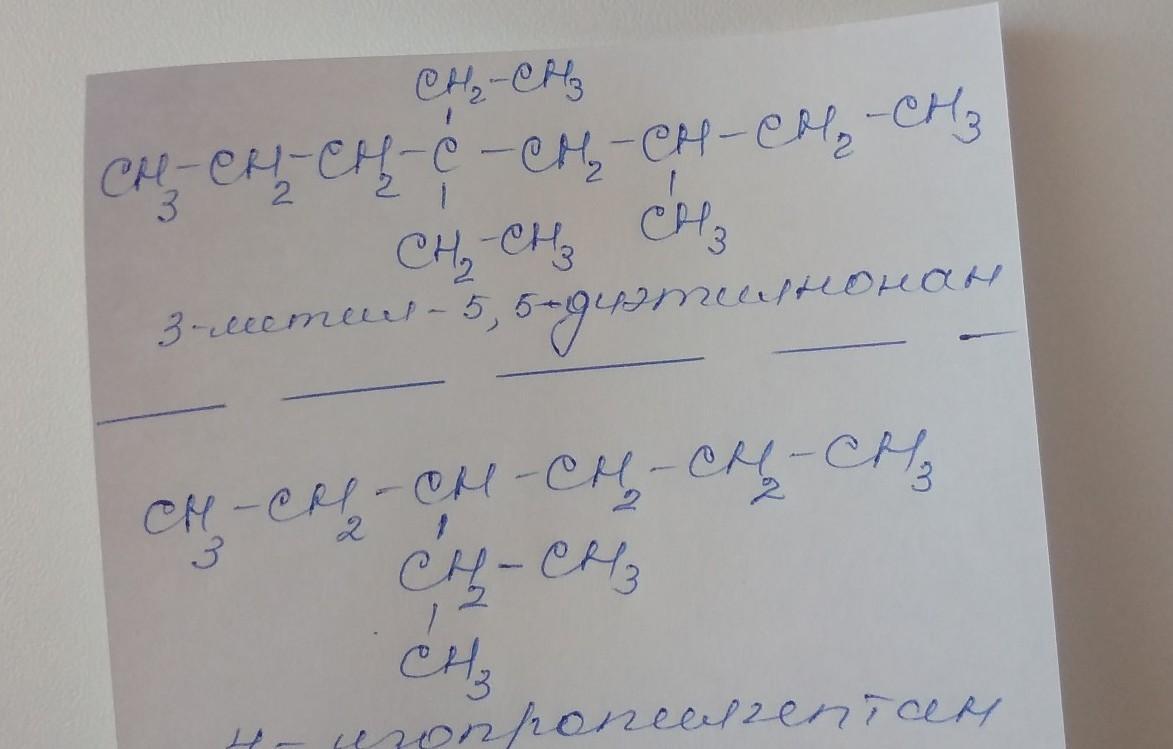 CH₂-CH₃
CH₃-CH₂-CH₂-C-CH₂-CH-CH₂-CH₃
CH₂-CH₃ CH₃
3-метил-5,5-диэтилнонан
CH₃-CH₂-CH-CH₂-CH₂-CH₃
CH₂-CH₃
CH₃
4-изопропилгептан